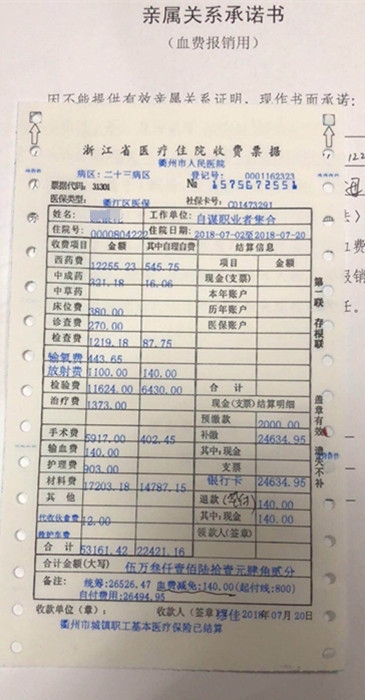 亲属关系承诺书
（血费报销用）
因不能提供有效亲属关系证明，现作书面承诺：
浙江省医疗住院收费票据
衢州市人民医院
病区：二十三病区 登记号：0001162323
票据代码：31301 № 1575672551
医保类型：衢江区医保 社保卡号：C01473291
姓名： 工作单位：自谋职业者集合
住院号：0000804222 住院日期：2018-07-02至2018-07-20
收费项目 金额 其中自理自费 结算信息
西药费 12255.23 545.75 项目 金额
中成药 321.18 16.06 现金(支票)
中草药 本年账户
床位费 380.00 历年账户
诊查费 270.00 医保账户
检查费 1219.18 87.75
输氧费 443.65
放射费 1100.00 140.00
检验费 11624.00 6430.00 合计
治疗费 1373.00 现金(支票)结算明细
预缴款 2000.00
手术费 5917.00 402.45 补缴 24634.95
输血费 140.00 其中:现金
护理费 903.00 支票
材料费 17203.18 14787.15 银行卡 24634.95
其他 退款 140.00
代收伙食费 12.00 其中:现金 140.00
救护车费 领款人(签章)
合计 53161.42 22421.16
合计金额(大写) 伍万叁仟壹佰陆拾壹元肆角贰分
备注：统筹:26526.47 血费减免:140.00(起付线:800)
自付费用:26494.95
收款单位(章)： 收款人(签章) 2018年07月20日
衢州市城镇职工基本医疗保险已结算
第一联 存根联
盖章有效 遗失不补